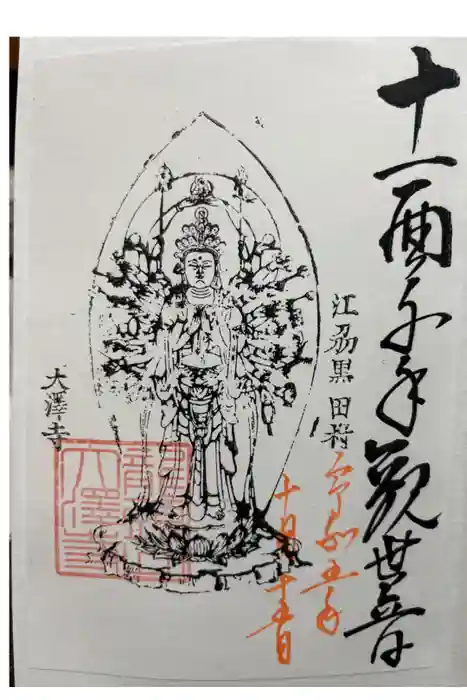 十一面千手観世音
江刕黒田村
令和五年
十月十五日
大澤寺